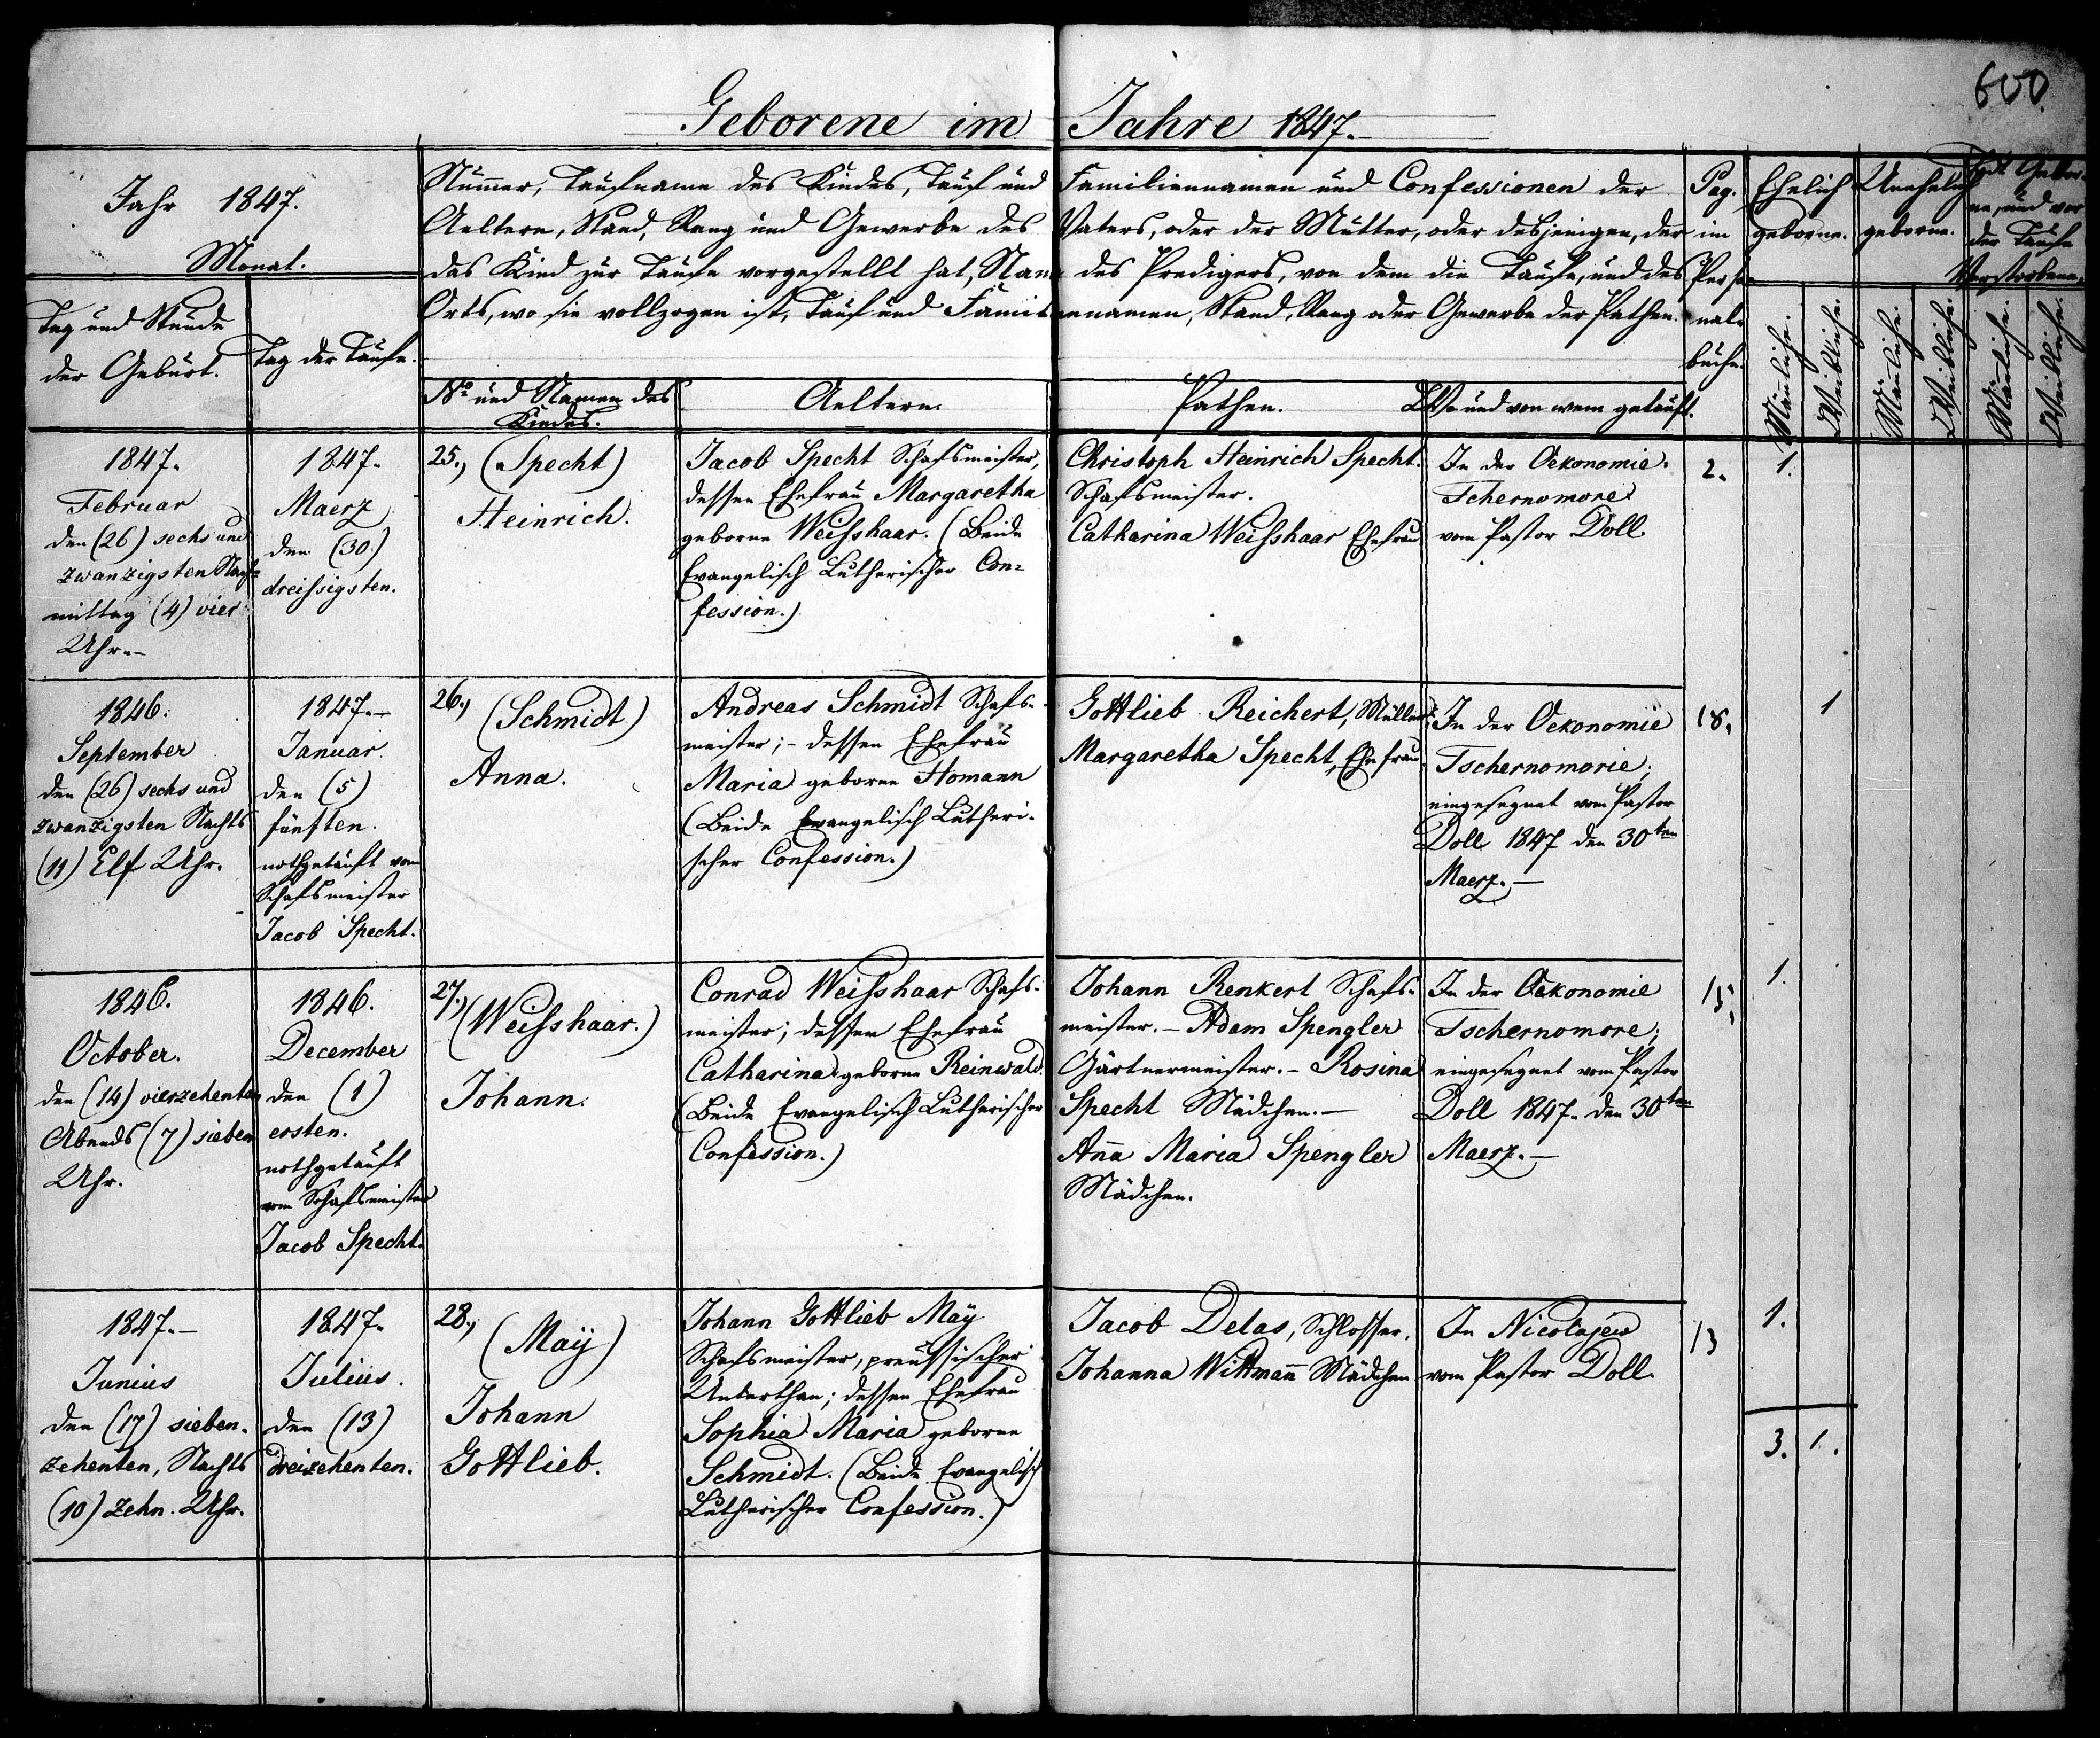 600.
Geborene im Jahre 1847.
Jahr 1847.
Monat.
Tag und Stunde
der Geburt.
Tag der Taufe.
Num̄er, Taufname des Kindes, Tauf und Familiennamen und Confessionen der
Aeltern, Stand, Rang und Gewerbe des Vaters, oder der Mutter, oder desjenigen, der
das Kind zur Taufe vorgestellt hat, Name des Predigers, von dem die Taufe, und des
Orts, wo sie vollzogen ist, Tauf und Familiennamen, Stand, Rang oder Gewerbe der Pathen.
No und Namen des
Kindes.
Aeltern.
Pathen.
Wo und von wem getauft.
Pag.
im
Perso-
nal-
buche.
Ehelich
geborne.
Unehelich
geborne.
Todt Gebor-
ne, und vor
der Taufe
Verstorbene.
Mänliche.
Weibliche.
Mänliche.
Weibliche.
Mänliche.
Weibliche.
1847.
Februar
den (26) sechs und
zwanzigsten Nach-
mittag (4) vier
Uhr.-
1847.
Maerz
den (30.)
dreißigsten.
25., (Specht)
Heinrich.
Jacob Specht Schafsmeister,
dessen Ehefrau Margaretha
geborne Weißhaar. (Beide
Evangelisch Lutherischer Con-
fession.)
Christoph Heinrich Specht.
Schafsmeister.
Catharina Weißhaar Ehefrau
In der Oekonomie
Tchernomore
vom Pastor Doll
2.
1.
1846.
September
den (26) sechs und
zwanzigsten Nachts
(11) Elf Uhr.
1847.-
Januar.
den (5)
fünften.
nothgetauft vom
Schafsmeister
Jacob Specht.
26., (Schmidt)
Anna.
Andreas Schmidt Schafs-
meister; - dessen Ehefrau
Maria geborne Homann
(Beide Evangelisch Lutheri-
scher Confession.)
Gottlieb Reichert, Müller.
Margaretha Specht, Ehefrau
In der Oekonomie
Tschernomorie;
eingesegnet vom Pastor
Doll 1847 den 30ten
Maerz.-
18.
1
1846.
October.
den (14) vierzehenten
Abends (7) sieben
Uhr.
1846.
December
den (1)
ersten.
nothgetauft
vom Schafsmeister
Jacob Specht.
27., (Weißhaar.)
Johann.
Conrad Weißhaar Schafs-
meister; dessen Ehefrau
Catharina geborne Reinwald.
(Beide Evangelisch Lutherischer
Confession.)
Johann Renkert Schafs-
meister. - Adam Spengler
Gärtnermeister. - Rosina
Specht Mädchen.-
Anna Maria Spengler
Mädchen.
In der Oekonomie
Tschernomore;
eingesegnet vom Pastor
Doll 1847. den 30ten
Maerz.-
1.
1847.-
Junius
den (17) sieben-
zehenten, Nachts
(10) Zehn. Uhr.
1847.
Julius.
den (13)
Dreizehenten.
28., (Maÿ)
Johann
Gottlieb.
Johann Gottlieb Maÿ
Schafsmeister, preußischer
Unterthan; dessen Ehefrau
Sophia Maria geborne
Schmidt. (Beide Evangelisch
Lutherischer Confession.)
Jacob Delas, Schlosser.
Johanna Wittmann Mädchen
In Nicolajew
vom Pastor Doll.
13
1.
3. 1.